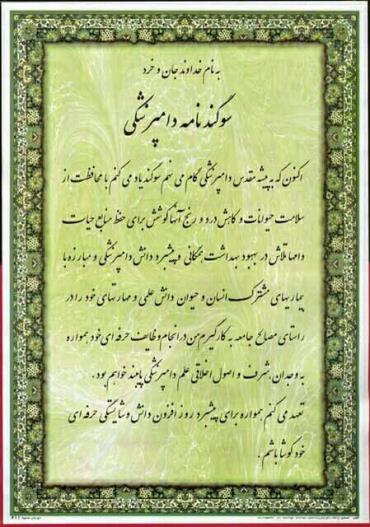 به نام خداوند جان و خرد
سوگند نامه دامپزشکی
اکنون که به پیشه مقدس دامپزشکی گام می نهم سوگند یاد می کنم با محافظت از
سلامت حیوانات و کاهش درد و رنج آنها کوشش برای حفظ منابع حیات
دامها تلاش در بهبود بهداشت همگانی و پیشبرد دانش دامپزشکی و مبارزه با
بیماریهای مشترک انسان و حیوان دانش علمی و مهارتهای خود را در
راستای مصالح جامعه به کار گیرم من در انجام وظایف حرفه ای خود همواره
به وجدان، شرف و اصول اخلاقی علم دامپزشکی پابند خواهم بود.
تعهد می کنم همواره برای پیشبرد روز افزون دانش و شایستگی حرفه ای
خود کوشا باشم.